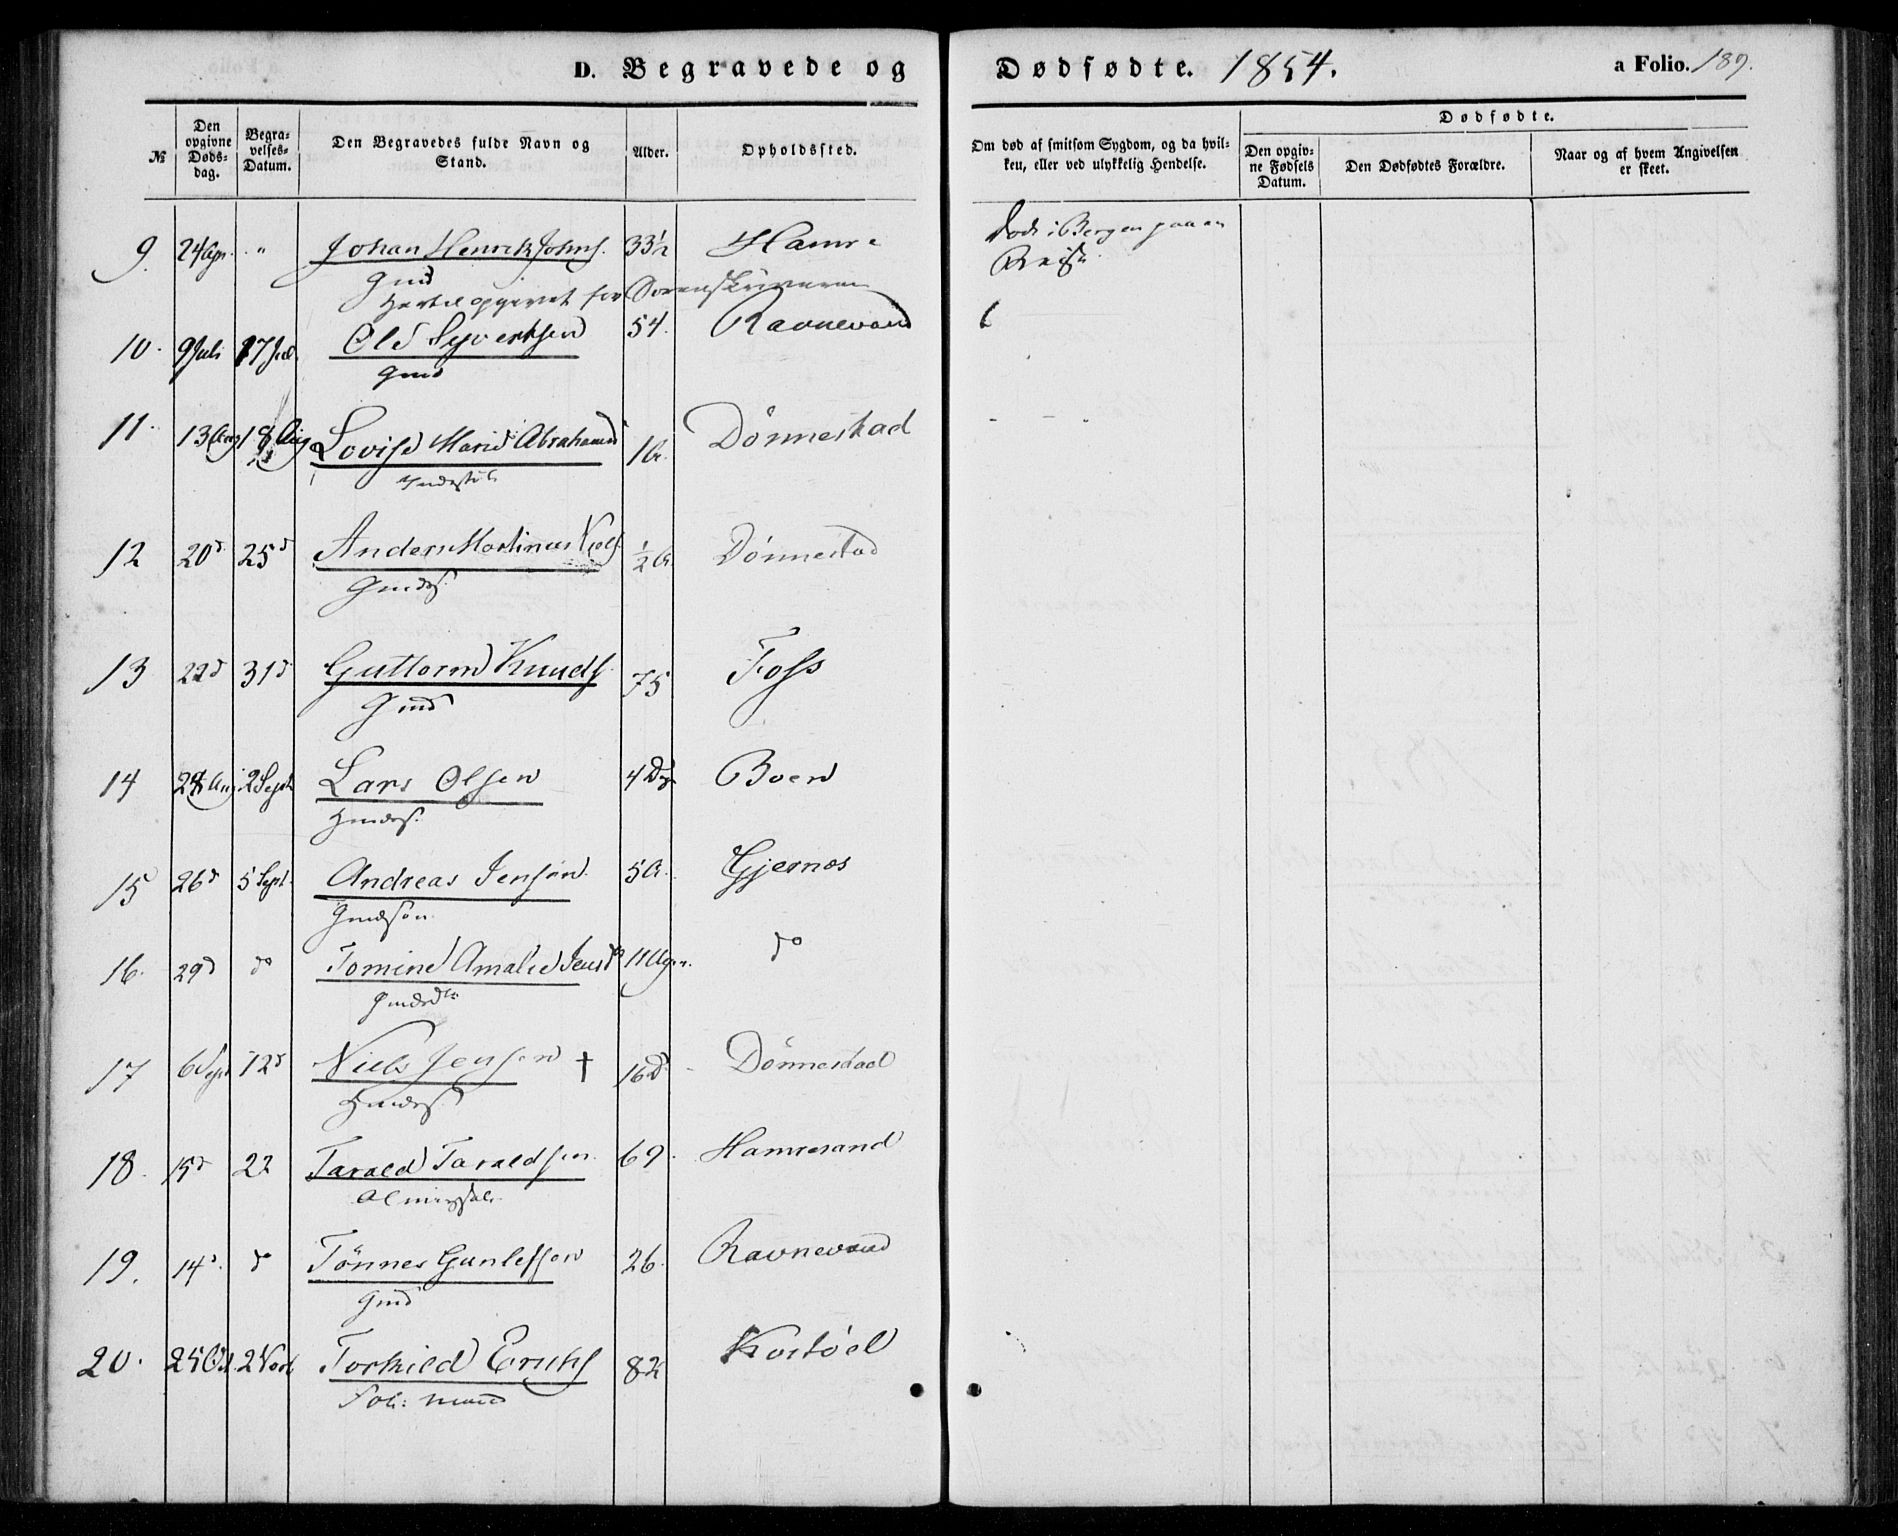 D. Begravede og Dødfødte. 1854. a Folio. 189.
№
Den opgivne Døds-dag.
Begra-velses-Datum.
Den Begravedes fulde Navn og Stand.
Alder.
Opholdssted.
Om død af smitsom Sygdom, og da hvil-ken, eller ved ulykkelig Hendelse.
Dødfødte.
Den opgiv-ne Fødsels Datum.
Den Dødfødtes Forældre.
Naar og af hvem Angivelsen er skeet.
9. 24 Apr. " Johan Henrik Johns. 33½ Hamre Død i Bergen paa en
Gmd Reise.
Hertil opgivet for Sorenskriveren
10. 9 Juli 17 Jul. Ole Syvertsen 54. Ravnevand
Gmd
11. 13 Aug 18 Aug Lovise Marie Abrahamsd 1 A. Dönnestad
12 20 d 25 d Anders Martinus Niels. ½ A. Dönnestad
Gmds.
13 22 d 31 d Guttorm Knuds. 75 Foss
Gmd
14 24 Aug. 2 Sept Lars Olsen 4 Dg Boen
Hmds.
15 26 d 5 Sept. Andreas Jensen 5 A. Gjernes
Gmdsön
16. 29 d do Tomine Amalie Jensd 11 Ugr. do
Gmdsdtr
17 6 Sept 12 d Niels Jensen † 16 D. Dönnestad
Hmds.
18. 15 d 22 Tarald Taraldsen 69. Hamresand
19. 14 d. d Tönnes Gunlefsen 26. Ravnevand
Gmd
20. 25 Oct. 2 Novb Torkild Eriks. 82 Kostöel
Fol: mand